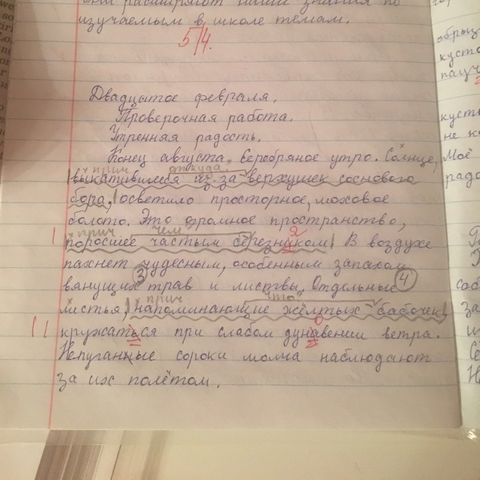 расширяют наши знания по
изучаемым в школе темам.
5/4.
Двадцатое февраля.
Проверочная работа.
Утренняя радость.
Конец августа. Серебряное утро. Солнце,
прич откуда
выкатившееся из-за верхушек соснового
бора, осветило просторное, моховое
болото. Это огромное пространство,
прич чем я
поросшее частым березником. В воздухе
пахнет чудесным, особенным запахом
3 4
вянущих трав и листвы. Отдельные
прич что
листья, напоминающие жёлтых бабочек,
кружаться при слабом дунавении ветра.
Непуганные сороки молча наблюдают
за их полётом.
обры
кусто
пауч
кусть
не к
Моё
радо
соб
за